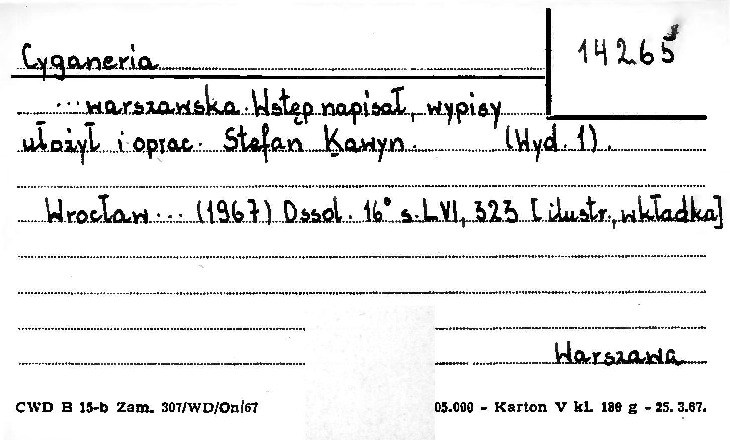 14265
Cyganeria
... warszawska. Wstęp napisał, wypisy
ułożył i oprac. Stefan Kawyn. (Wyd. 1).
Wrocław ... (1967) Ossol. 16° s. LVI, 323 [ilustr., wkładka]
Warszawa
CWD B 15-b Zam. 307/WD/On/67 05.000 - Karton V kl. 180 g - 25.3.67.